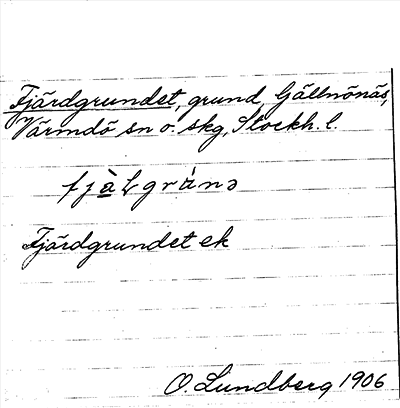 Fjärdgrundet, grund, Gällnönäs,
Värmdö sn o. skg, Stockh. l.
Fjärdgrundet ek
O. Lundberg 1906